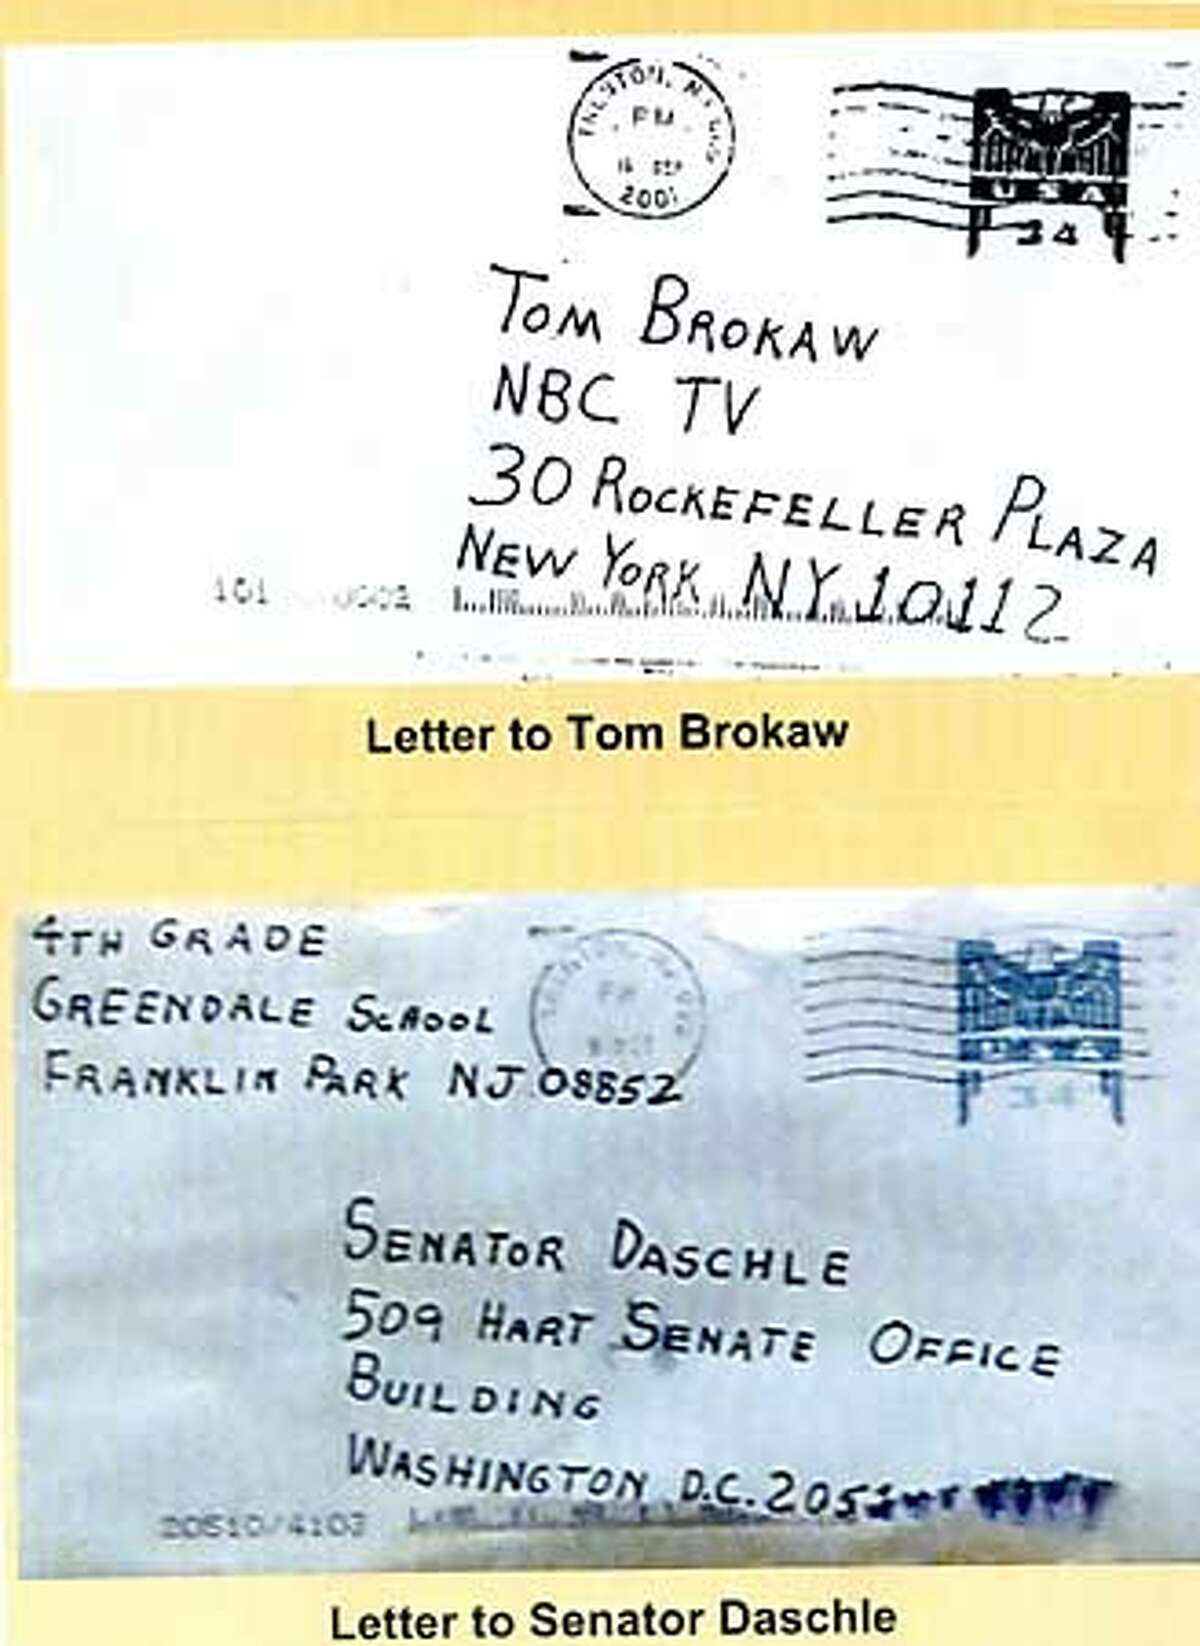 TRENTON, NJ
PM
SEP
2001
USA
34
TOM BROKAW
NBC TV
30 ROCKEFELLER PLAZA
NEW YORK NY 10112
101
Letter to Tom Brokaw
4TH GRADE
GREENDALE SCHOOL
FRANKLIN PARK NJ 08852
PM
USA
34
SENATOR DASCHLE
509 HART SENATE OFFICE
BUILDING
WASHINGTON D.C. 205
20510/4103
Letter to Senator Daschle